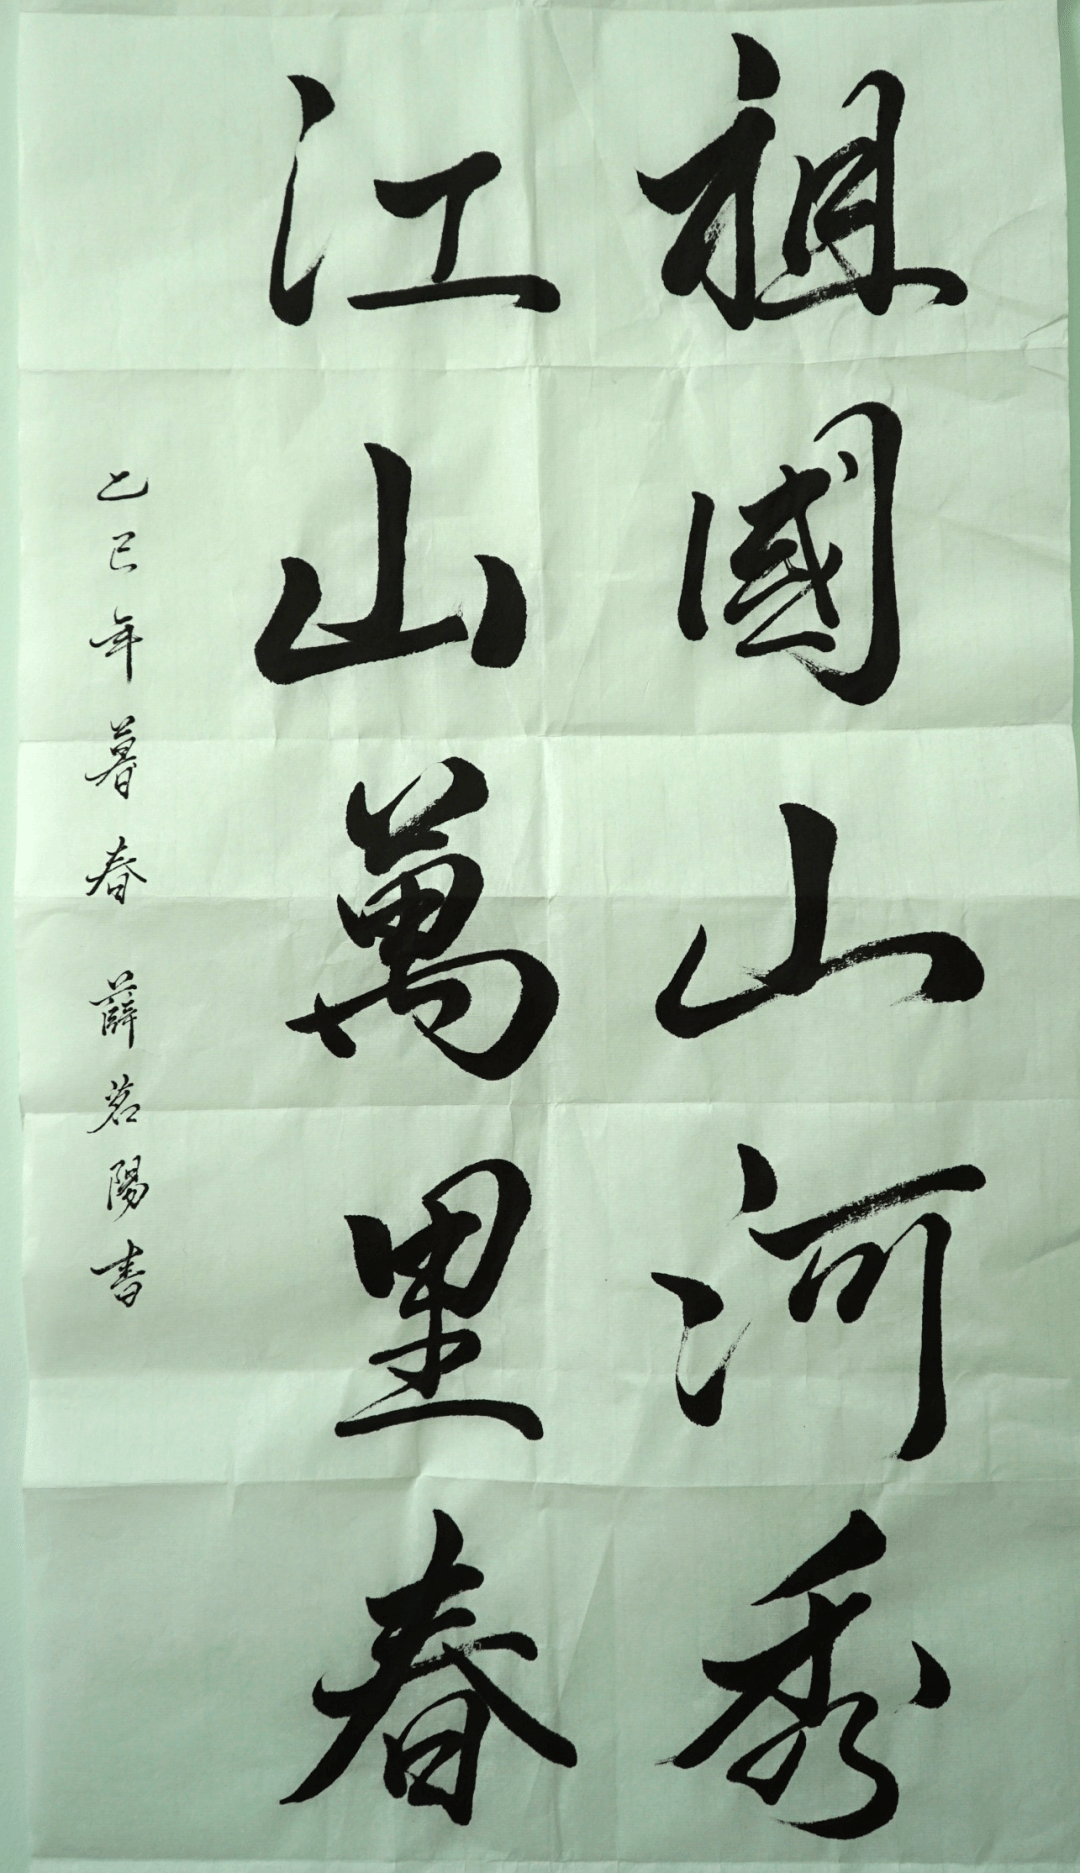 祖國山河秀
江山萬里春
乙巳年暮春 薛茗陽書